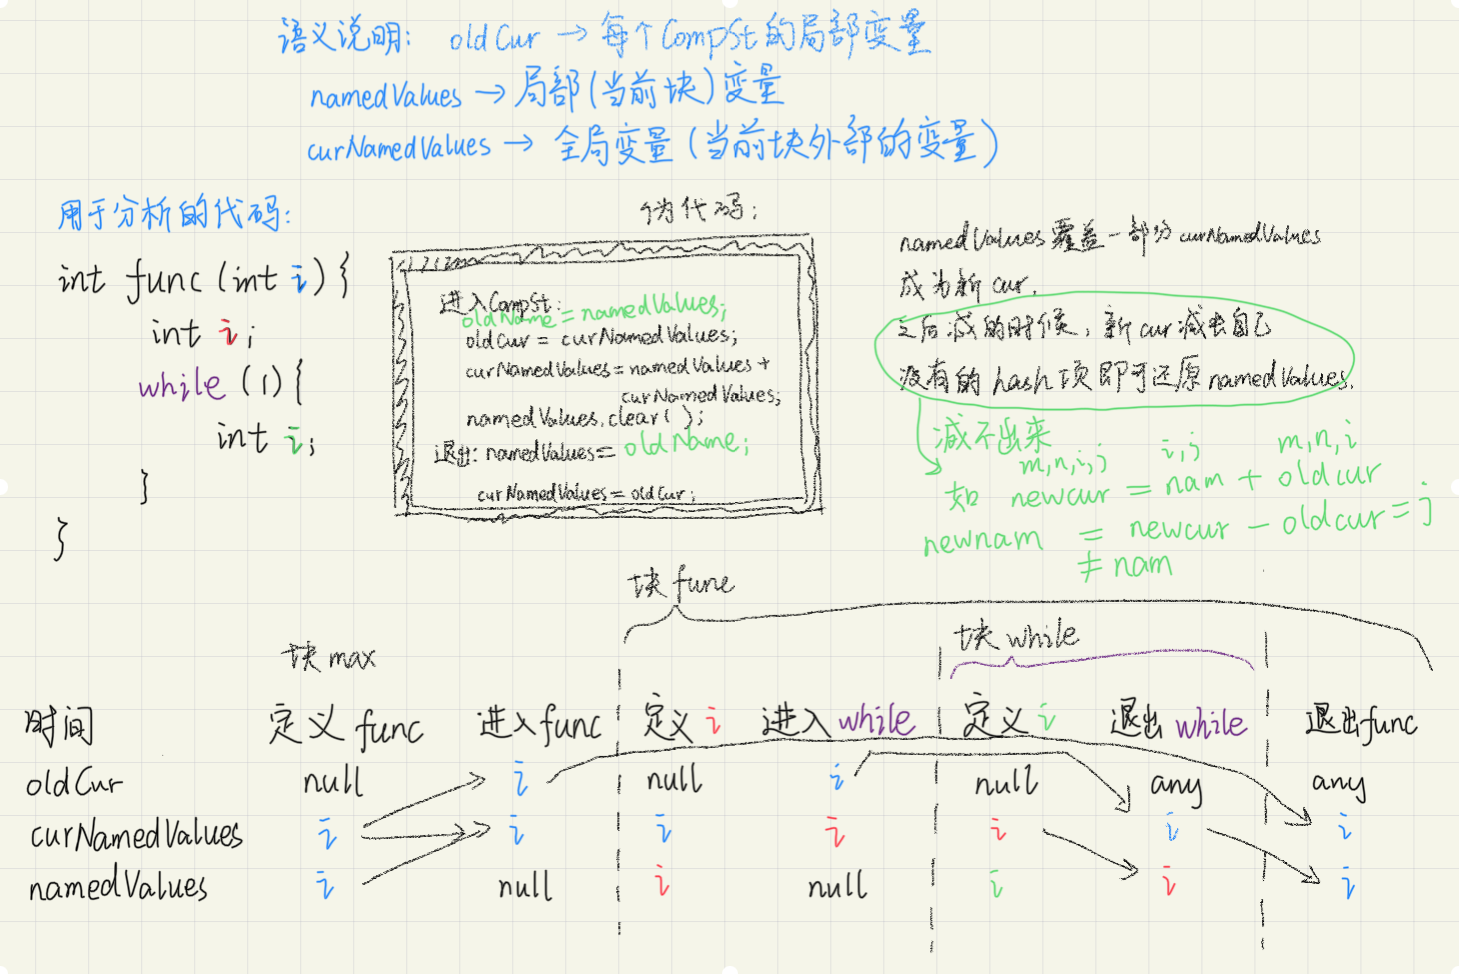 语义说明: oldCur → 每个CompSt的局部变量
namedValues → 局部(当前块)变量
curNamedValues → 全局变量(当前块外部的变量)
用于分析的代码:
int func (int i) {
int i;
while (1) {
int i;
}
}
伪代码:
进入CompSt:
oldName = namedValues;
oldCur = curNamedValues;
curNamedValues = namedValues +
curNamedValues;
namedValues.clear( );
退出: namedValues = oldName;
curNamedValues = oldCur;
namedValues覆盖一部分curNamedValues
成为新cur.
之后减的时候, 新cur减去自己
没有的hash项即可还原namedValues.
减不出来
m,n,i,j i,j m,n,i
如 newcur = nam + oldcur
newnam = newcur - oldcur = j
≠ nam
块func
块max 块while
时间 定义func 进入func 定义i 进入while 定义i 退出while 退出func
oldCur null i null i null any any
curNamedValues i i i i i i i
namedValues i null i null i i i